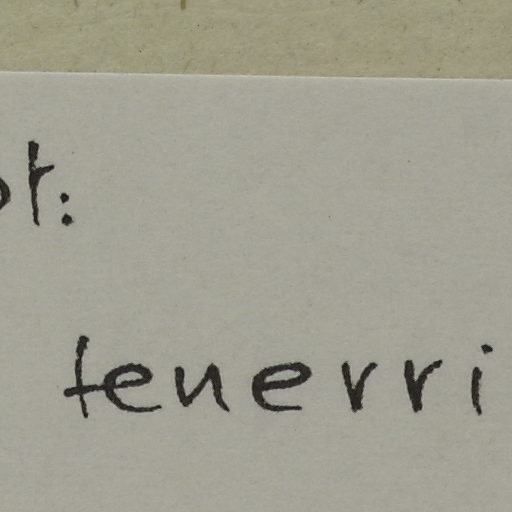 ot:
tenerri